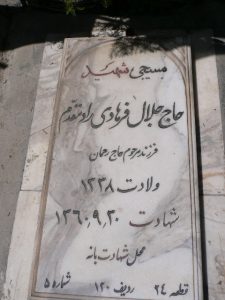 بسیجی شهید
حاج جلال فرهادی راد مقدم
فرزند مرحوم حاج رحمان
ولادت ۱۳۳۸
شهادت ۱۳۶۰٫۹٫۲۰
محل شهادت بانه
قطعه ۲۴ ردیف ۱۲۰ شماره ۵